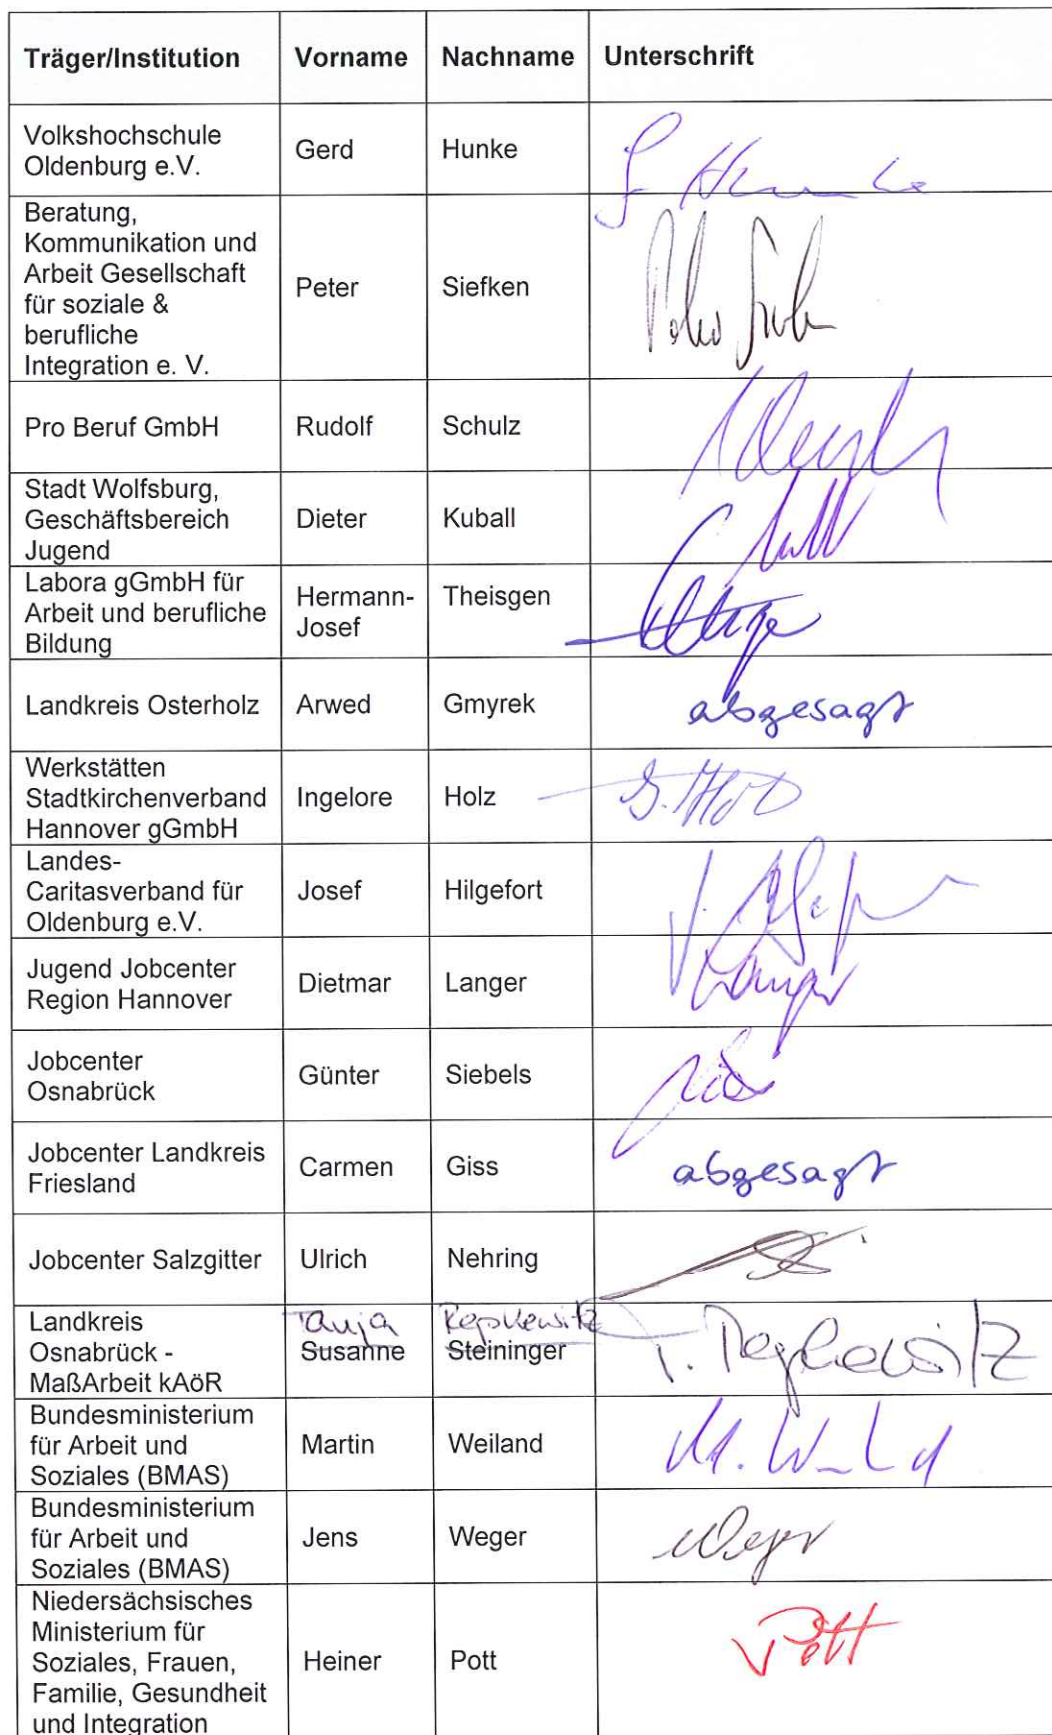 Träger/Institution Vorname Nachname Unterschrift
Volkshochschule
Oldenburg e.V.
Gerd Hunke
Beratung,
Kommunikation und
Arbeit Gesellschaft
für soziale &
berufliche
Integration e. V.
Peter Siefken
Pro Beruf GmbH Rudolf Schulz
Stadt Wolfsburg,
Geschäftsbereich
Jugend
Dieter Kuball
Labora gGmbH für
Arbeit und berufliche
Bildung
Hermann-
Josef
Theisgen
Landkreis Osterholz Arwed Gmyrek abgesagt
Werkstätten
Stadtkirchenverband
Hannover gGmbH
Ingelore Holz
Landes-
Caritasverband für
Oldenburg e.V.
Josef Hilgefort
Jugend Jobcenter
Region Hannover
Dietmar Langer Langer
Jobcenter
Osnabrück
Günter Siebels
Jobcenter Landkreis
Friesland
Carmen Giss abgesagt
Jobcenter Salzgitter Ulrich Nehring
Landkreis
Osnabrück -
MaßArbeit kAöR
Tanja Repkewitz
Susanne Steininger
T. Repkewitz
Bundesministerium
für Arbeit und
Soziales (BMAS)
Martin Weiland
Bundesministerium
für Arbeit und
Soziales (BMAS)
Jens Weger Weger
Niedersächsisches
Ministerium für
Soziales, Frauen,
Familie, Gesundheit
und Integration
Heiner Pott Pott